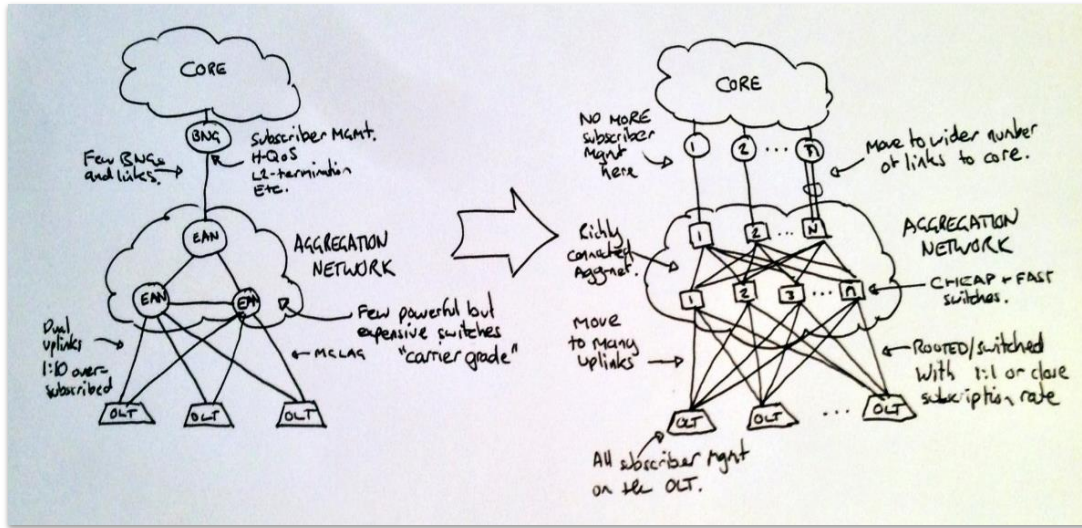 CORE
BNG
Few BNGs
and links.
Subscriber MGMT.
H-QoS
L2-termination
Etc.
EAN
AGGREGATION
NETWORK
EAN
EAN
Few powerful but
expensive switches
"carrier grade"
Dual
uplinks
1:10 over-
subscribed
MCLAG
OLT
OLT
OLT
CORE
NO MORE
subscriber
Mgnt
here
1
2
...
n
Move to wider number
of links to core.
1
2
...
N
Richly
connected
Aggrnet.
AGGREGATION
NETWORK
1
2
3
...
n
CHEAP + FAST
switches.
Move
to Many
uplinks
ROUTED/switched
with 1:1 or close
subscription rate
OLT
OLT
...
OLT
All subscriber mgnt
on the OLT.